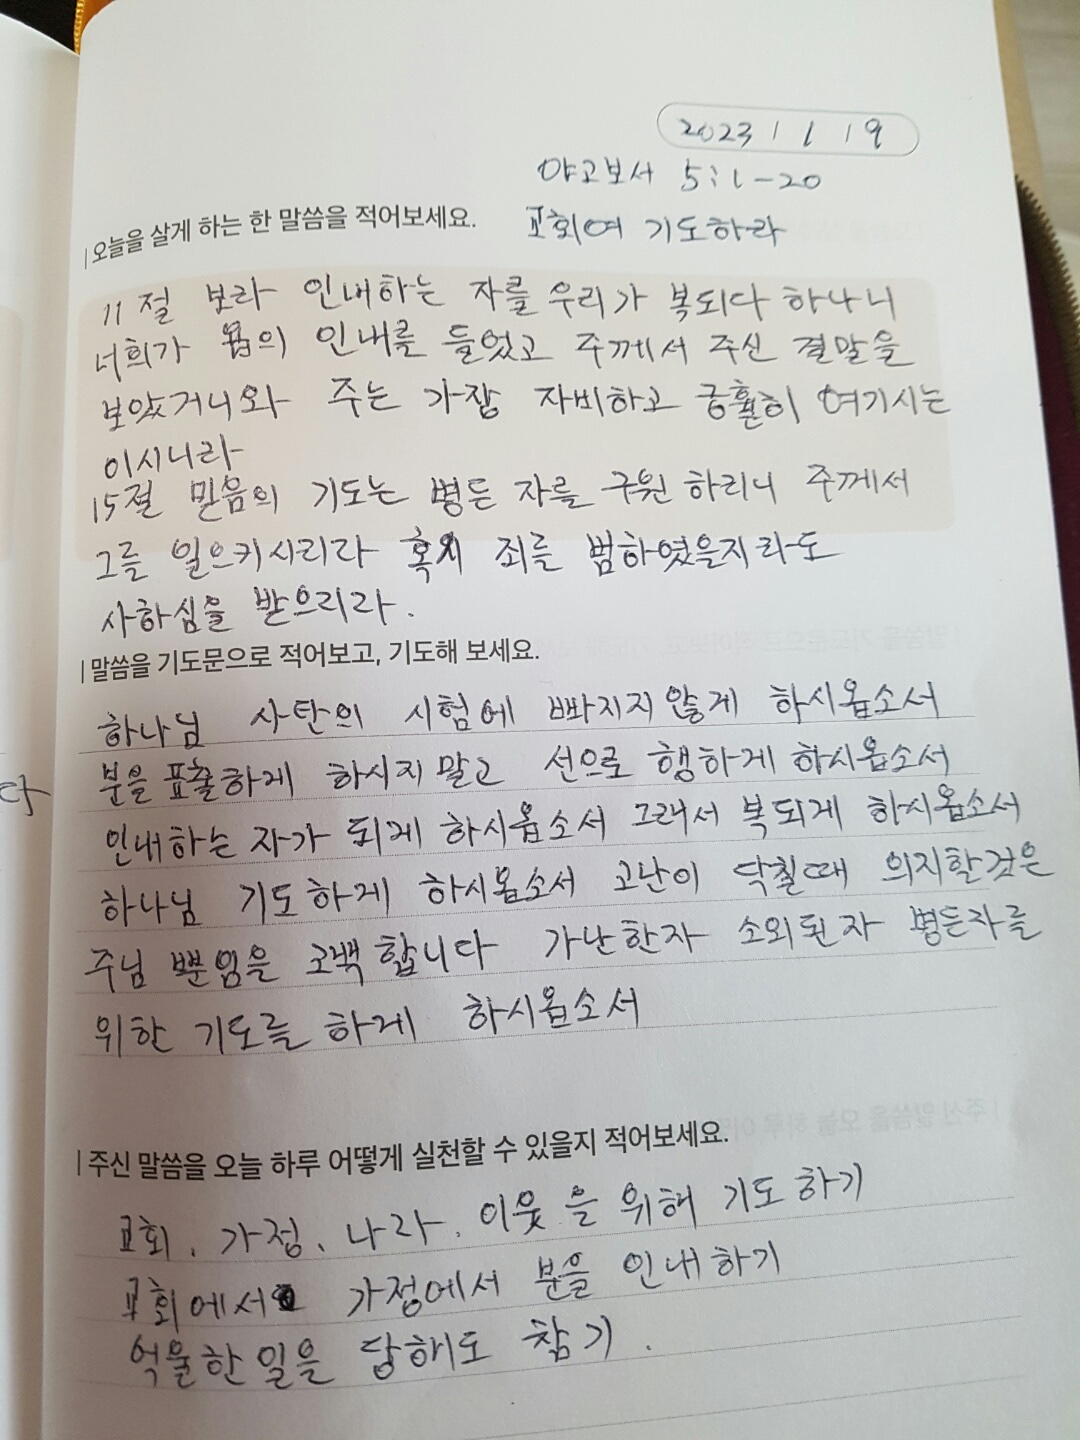 2023 / 1 / 19
야고보서 5:1-20
오늘을 살게 하는 한 말씀을 적어보세요.
교회여 기도하라
11절 보라 인내하는 자를 우리가 복되다 하나니
너희가 욥의 인내를 들었고 주께서 주신 결말을
보았거니와 주는 가장 자비하고 긍휼히 여기시는
이시니라
15절 믿음의 기도는 병든 자를 구원 하리니 주께서
그를 일으키시리라 혹시 죄를 범하였을지라도
사하심을 받으리라.
말씀을 기도문으로 적어보고, 기도해 보세요.
하나님 사탄의 시험에 빠지지 않게 하시옵소서
분을 표출하게 하시지 말고 선으로 행하게 하시옵소서
다
인내하는 자가 되게 하시옵소서 그래서 복되게 하시옵소서
하나님 기도하게 하시옵소서 고난이 닥칠때 의지할것은
주님 뿐임을 고백합니다 가난한자 소외된자 병든자를
위한 기도를 하게 하시옵소서
주신 말씀을 오늘 하루 어떻게 실천할 수 있을지 적어보세요.
교회, 가정, 나라, 이웃을 위해 기도하기
교회에서 가정에서 분을 인내하기
억울한일을 당해도 참기.